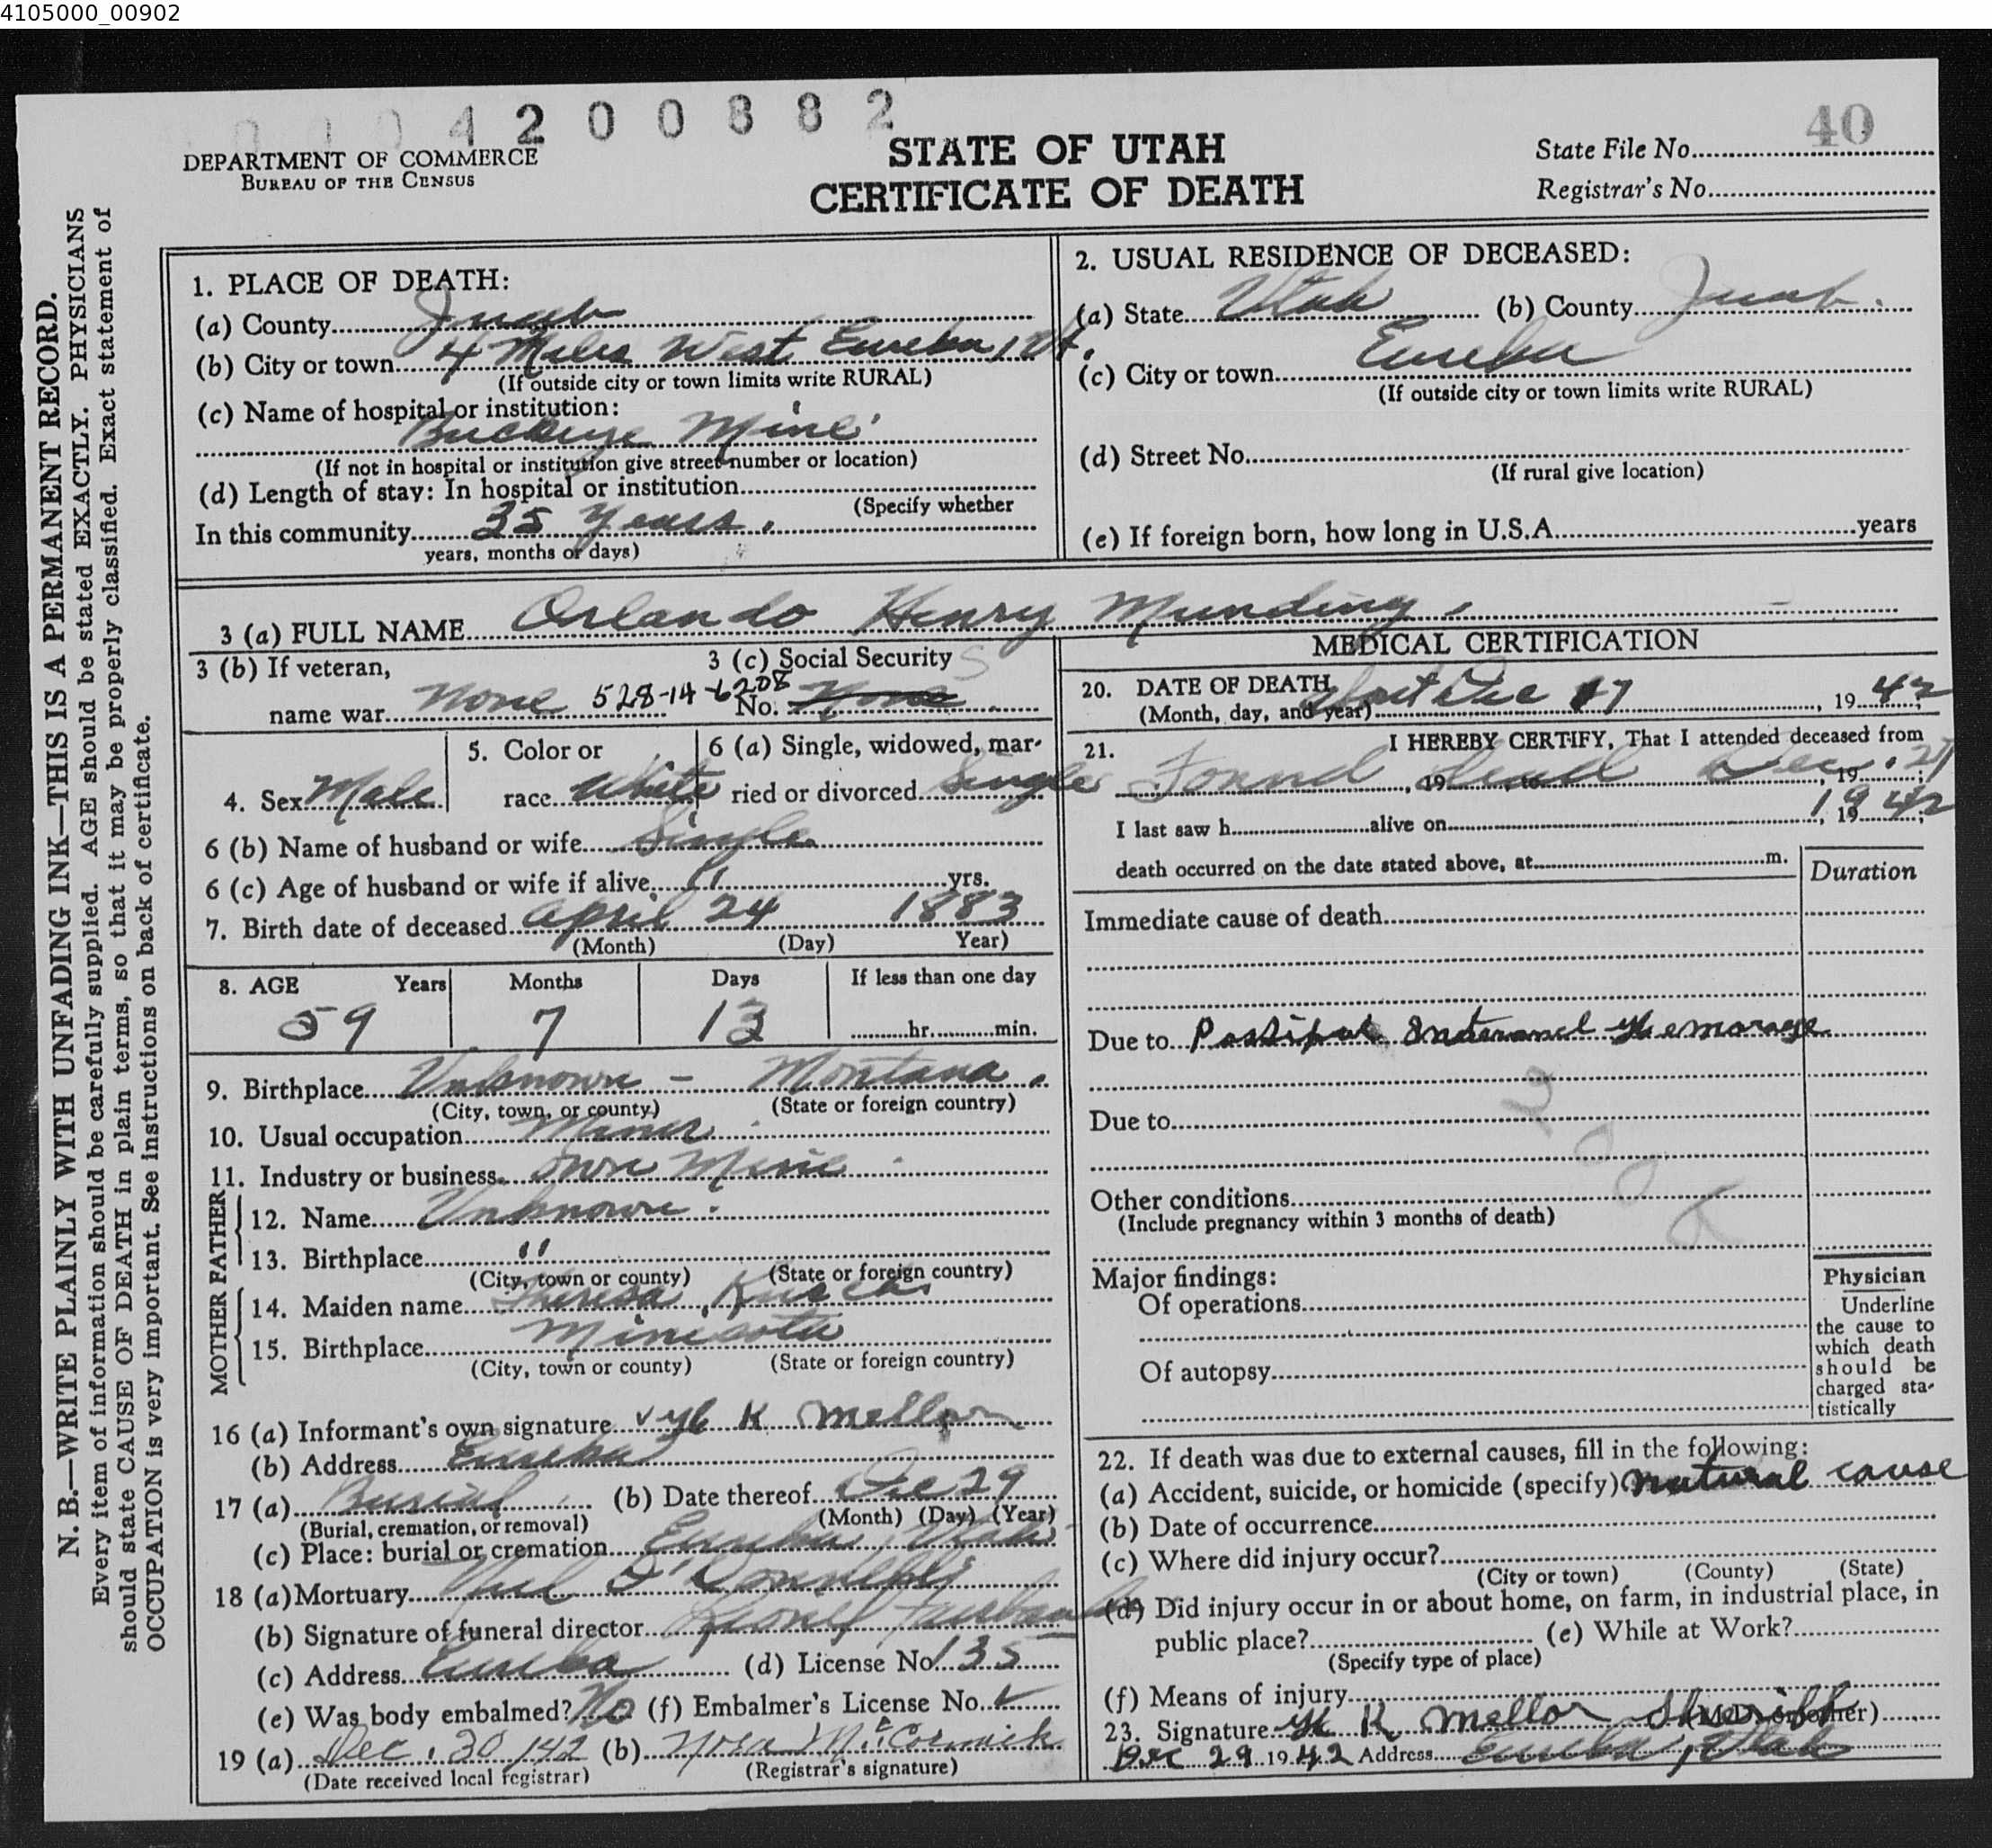 4105000_00902
0004200882
40
DEPARTMENT OF COMMERCE
BUREAU OF THE CENSUS
STATE OF UTAH
CERTIFICATE OF DEATH
State File No.
Registrar's No.
N. B.—WRITE PLAINLY WITH UNFADING INK—THIS IS A PERMANENT RECORD.
Every item of information should be carefully supplied. AGE should be stated EXACTLY. PHYSICIANS
should state CAUSE OF DEATH in plain terms, so that it may be properly classified. Exact statement of
OCCUPATION is very important. See instructions on back of certificate.
1. PLACE OF DEATH:
(a) County Juab
(b) City or town 4 Miles West Eureka, Ut.
(If outside city or town limits write RURAL)
(c) Name of hospital or institution:
Buckeye Mine
(If not in hospital or institution give street number or location)
(d) Length of stay: In hospital or institution
(Specify whether
In this community 35 Years.
years, months or days)
2. USUAL RESIDENCE OF DECEASED:
(a) State Utah (b) County Juab.
(c) City or town Eureka
(If outside city or town limits write RURAL)
(d) Street No.
(If rural give location)
(e) If foreign born, how long in U.S.A. years
3 (a) FULL NAME Orlando Henry Munding
3 (b) If veteran,
name war None
3 (c) Social Security
528-14-6208 No. None
4. Sex Male
5. Color or
race White
6 (a) Single, widowed, mar-
ried or divorced Single
6 (b) Name of husband or wife Single
6 (c) Age of husband or wife if alive " yrs.
7. Birth date of deceased April 24 1883
(Month) (Day) Year)
8. AGE Years Months Days If less than one day
59 7 13 hr. min.
9. Birthplace Unknown - Montana.
(City, town, or county) (State or foreign country)
10. Usual occupation Miner
11. Industry or business Own Mine
FATHER
12. Name Unknown.
13. Birthplace "
(City, town or county) (State or foreign country)
MOTHER
14. Maiden name Theresa
15. Birthplace Minisota
(City, town or county) (State or foreign country)
16 (a) Informant's own signature K Mellor
(b) Address Eureka
17 (a) Burial (b) Date thereof Dec 29
(Burial, cremation, or removal) (Month) (Day) (Year)
(c) Place: burial or cremation Eureka, Utah
18 (a) Mortuary O'Donnell
(b) Signature of funeral director Lionel Fairbanks
(c) Address Eureka (d) License No. 135
(e) Was body embalmed? No (f) Embalmer's License No. ✓
19 (a) Dec. 30, 42 (b) Nora McCormick
(Date received local registrar) (Registrar's signature)
MEDICAL CERTIFICATION
20. DATE OF DEATH Dec 17, 1942
(Month, day, and year)
21. I HEREBY CERTIFY, That I attended deceased from
Found, 19 dead to Dec. 27, 19
1942
I last saw h alive on , 19 ;
death occurred on the date stated above, at m.
Duration
Immediate cause of death
Due to Possible Internal Hemorage
Due to
Other conditions
(Include pregnancy within 3 months of death)
Major findings:
Of operations
Of autopsy
Physician
Underline
the cause to
which death
should be
charged sta-
tistically
22. If death was due to external causes, fill in the following:
(a) Accident, suicide, or homicide (specify) natural cause
(b) Date of occurrence
(c) Where did injury occur?
(City or town) (County) (State)
(d) Did injury occur in or about home, on farm, in industrial place, in
public place? (e) While at Work?
(Specify type of place)
(f) Means of injury
23. Signature K Mellor Sheriff (M.D. or other)
Dec 29 1942 Address Eureka, Utah